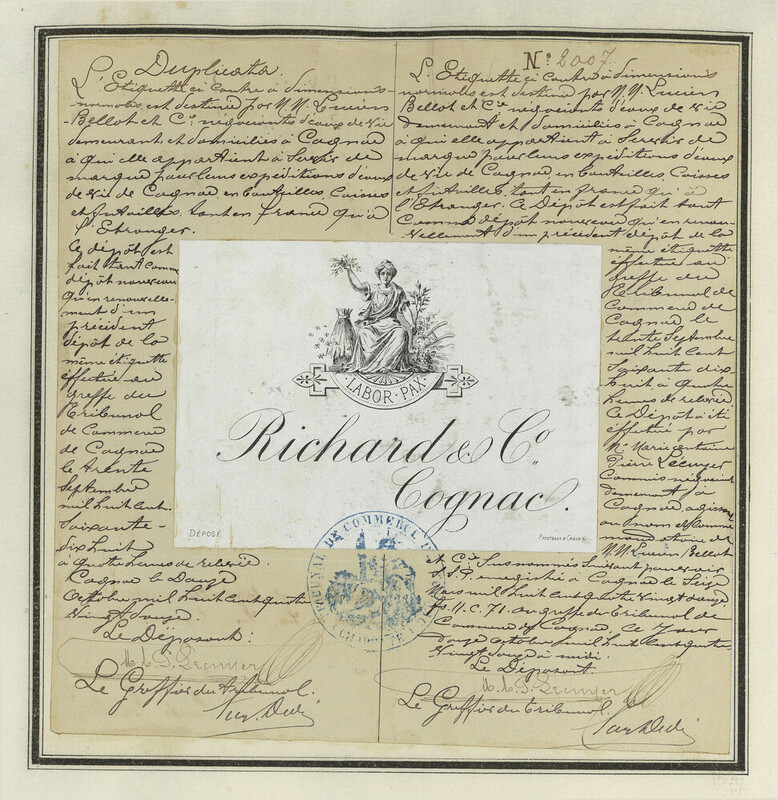 Duplicata.
L'Etiquette ci contre à dimensions
normales, est destinée par M.M. Lucien
Bellot et Cie négociants d'eaux de vie
demeurant et domiciliés à Cognac
à qui elle appartient à servir de
marque pour leurs expéditions d'eaux
de vie de Cognac, en bouteilles, Caisses
et futailles, tant en France qu'à
l'Etranger.
Ce dépôt est
fait tant comme
dépôt nouveau
qu'en renouvelle-
ment d'un
précédent
dépôt de la
même étiquette
effectué au
greffe du
Tribunal
de Commerce
de Cognac
le trente
Septembre
mil huit cent
soixante-
dix huit
à quatre heures de relevée.
Cognac le Douze
Octobre mil huit cent quatre
vingt douze.
Le Déposant:
Le Greffier du Tribunal.
N° 2007
L'Etiquette ci contre à dimensions
normales est destinée par M.M. Lucien
Bellot et Cie négociants d'eaux de vie
demeurant et domiciliés à Cognac
à qui elle appartient à servir de
marque pour leurs expéditions d'eaux
de vie de Cognac en bouteilles, Caisses
et futailles tant en france qu'à
l'Etranger. Ce Dépôt est fait tant
comme dépôt nouveau qu'en renou-
vellement d'un précédent dépôt de la
même étiquette
effectué au
greffe du
Tribunal de
Commerce de
Cognac le
trente Septembre
mil huit cent
soixante dix
huit à quatre
heures de relevée
Ce Dépôt a été
effectué par
Mr Marie Antoine
Pierre
Commis négociant
demeurant à
Cognac, agissant
au nom et comme
mandataire de
M.M. Lucien Bellot
et Cie susnommés suivant pouvoir
S.P. enregistré à Cognac le Seize
Mars mil huit cent quatre vingt douze
fo. 11. C. 71. au greffe du Tribunal de
Commerce de Cognac, ce jour
douze octobre mil huit cent quatre-
vingt douze à midi.
Le Déposant.
Le Greffier du Tribunal.
LABOR · PAX
Richard & Co.,
Cognac.
DÉPOSÉ
TRIBUNAL DE COMMERCE